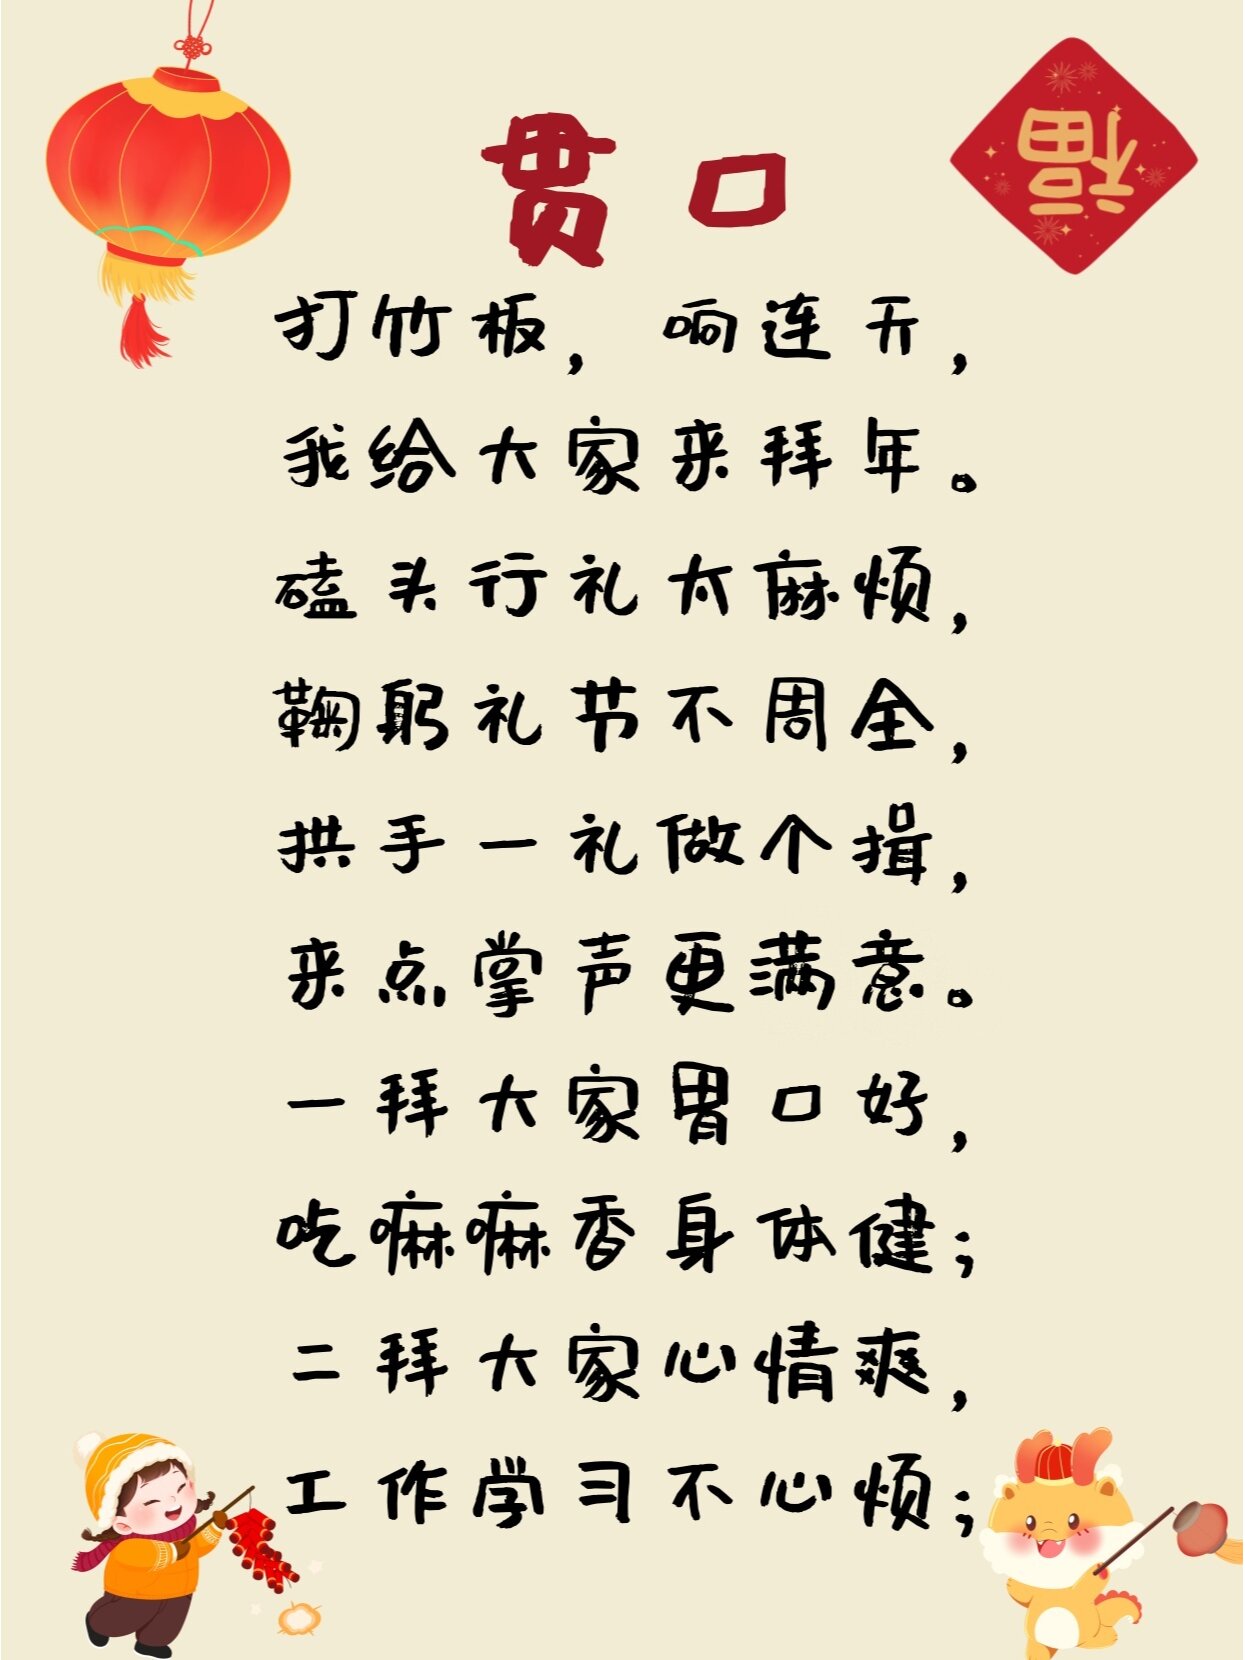 福
贯口
打竹板，响连天，
我给大家来拜年。
磕头行礼太麻烦，
鞠躬礼节不周全，
拱手一礼做个揖，
来点掌声更满意。
一拜大家胃口好，
吃嘛嘛香身体健；
二拜大家心情爽，
工作学习不心烦；